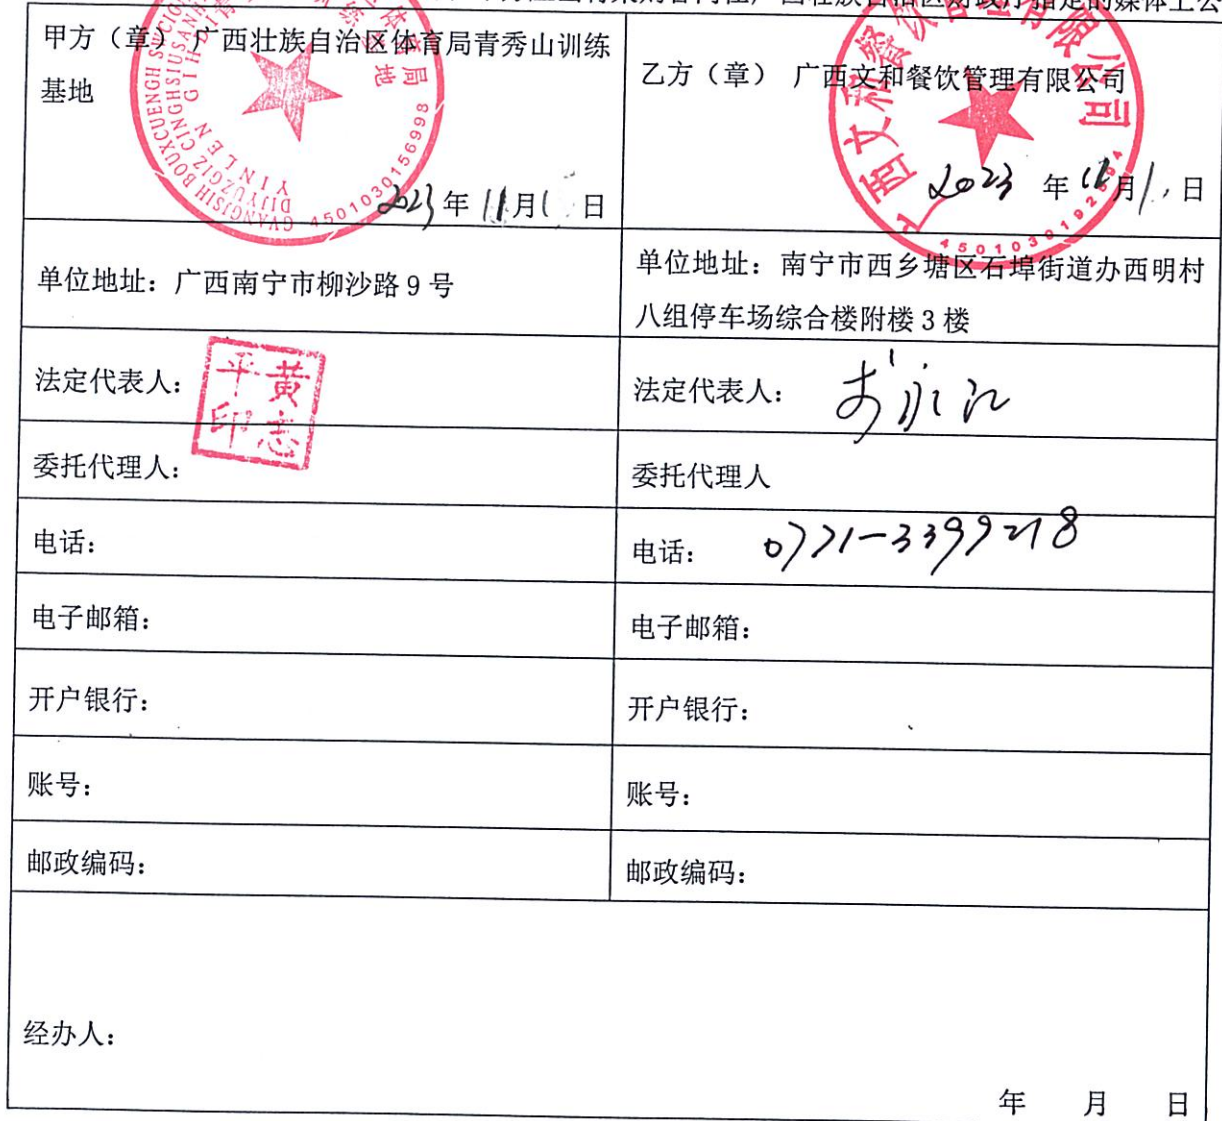 广西壮族自治区财政厅指定的媒体上公
甲方（章） 广西壮族自治区体育局青秀山训练
基地
2023年11月1日
乙方（章） 广西文和餐饮管理有限公司
2023年11月1日
单位地址：广西南宁市柳沙路9号
单位地址：南宁市西乡塘区石埠街道办西明村
八组停车场综合楼附楼3楼
法定代表人：
黄志平印
法定代表人：
委托代理人：
委托代理人
电话：
电话： 0771-3399218
电子邮箱：
电子邮箱：
开户银行：
开户银行：
账号：
账号：
邮政编码：
邮政编码：
经办人：
年 月 日
4501030156998